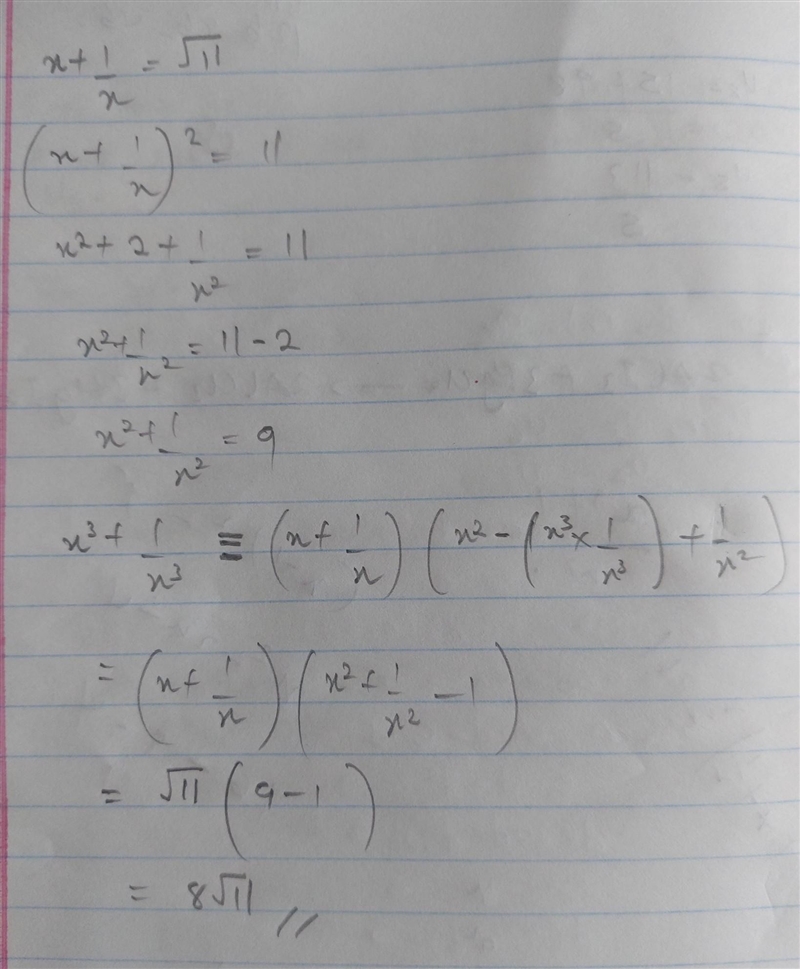 x + 1/x = √11
(x + 1/x)² = 11
x² + 2 + 1/x² = 11
x² + 1/x² = 11 - 2
x² + 1/x² = 9
x³ + 1/x³ ≡ (x + 1/x) (x² - (x³ × 1/x³) + 1/x²)
= (x + 1/x) (x² + 1/x² - 1)
= √11 (9 - 1)
= 8√11 //